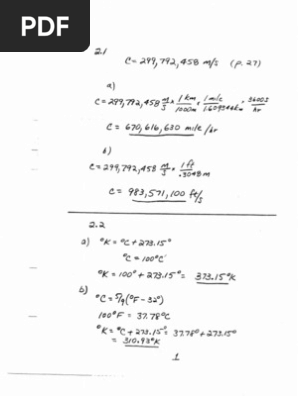 PDF
2.1
C = 299,792,458 m/s (p. 27)
a)
C = 299,792,458 m/s × 1 km/1000m × 1 mile/1.609344km × 3600s/hr
C = 670,616,630 mile/hr
b)
C = 299,792,458 m/s × 1 ft/.3048m
C = 983,571,100 ft/s
2.2
a) °K = °C + 273.15°
°C = 100°C
°K = 100° + 273.15° = 373.15°K
b)
°C = 5/9(°F - 32°)
100°F = 37.78°C
°K = °C + 273.15° = 37.78° + 273.15°
= 310.93°K
1